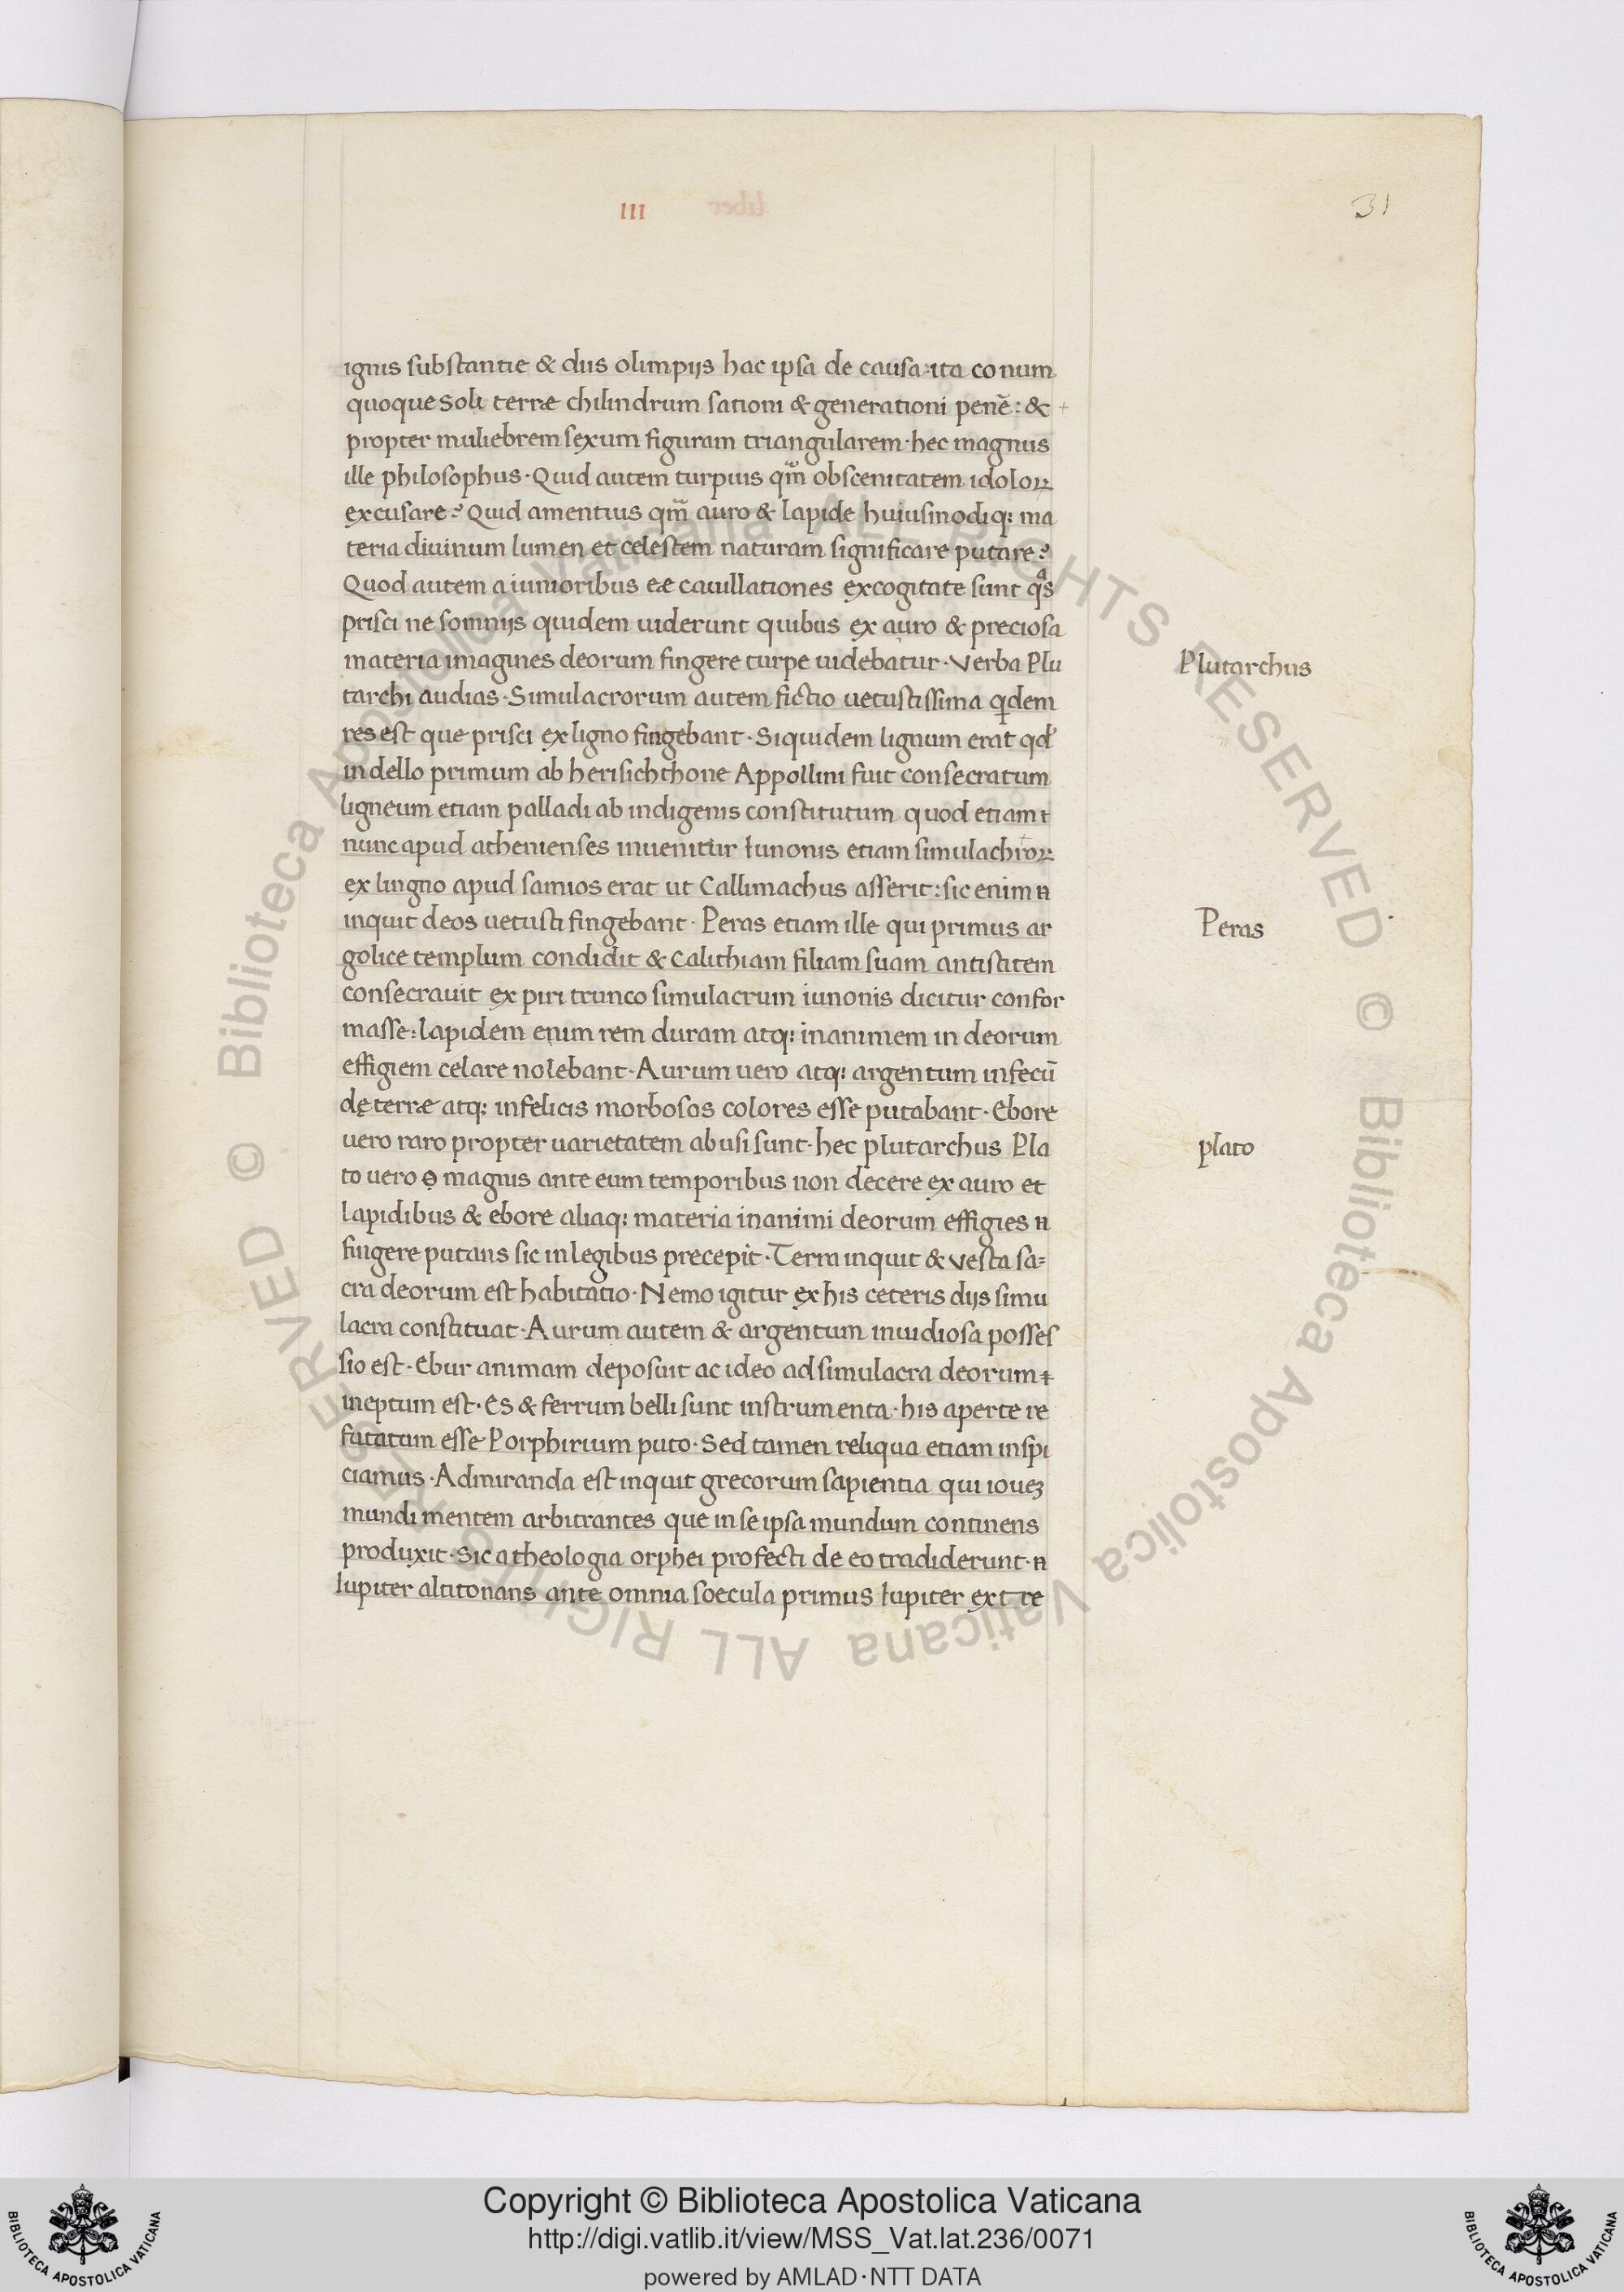 III
31
ignis substantie & diis olimpijs hac ipsa de causa: ita conum
quoque soli terræ chilindrum sationi & generationi penē: &
propter muliebrem sexum figuram triangularem· hec magnus
ille philosophus· Quid autem turpius qm̄ obscenitatem idoloꝝ
excusare? Quid amentius qm̄ auro & lapide huiusmodiq: ma
teria diuinum lumen et celestem naturam significare putare?
Quod autem a iunioribus eæ cauillationes excogitate sunt qᵃs
prisci ne somnijs quidem uiderunt quibus ex auro & preciosa
materia imagines deorum fingere turpe uidebatur· Verba Plu
tarchi audias· Simulacrorum autem fictio uetustissima qdem
res est que prisci ex ligno fingebant· Siquidem lignum erat qd'
in dello primum ab herisichthone Appollini fuit consecratum
ligneum etiam palladi ab indigenis constitutum quod etiam
nunc apud athenienses inuenitur Iunonis etiam simulachroꝝ
ex lingno apud samios erat ut Callimachus asserit: sic enim
inquit deos uetusti fingebant· Peras etiam ille qui primus ar
golice templum condidit & Calithiam filiam suam antistitem
consecrauit ex piri trunco simulacrum iunonis dicitur confor
masse: lapidem enim rem duram atq: inanimem in deorum
effigiem celare nolebant· Aurum uero atq: argentum infecū
dę terræ atq: infelicis morbosos colores esse putabant· Ebore
uero raro propter uarietatem abusi sunt· hec plutarchus Pla
to uero magnis ante eum temporibus non decere ex auro et
lapidibus & ebore aliaq: materia inanimi deorum effigies
fingere putans sic in legibus precepit· Terra inquit & Vesta sa=
cra deorum est habitatio· Nemo igitur ex his ceteris dijs simu
lacra constituat· Aurum autem & argentum inuidiosa posses
sio est· Ebur animam deposuit ac ideo ad simulacra deorum
ineptum est· Es & ferrum belli sunt instrumenta· his aperte re
futatum esse Porphirium puto· Sed tamen reliqua etiam inspi
ciamus· Admiranda est inquit grecorum sapientia qui ioueʒ
mundi mentem arbitrantes que in se ipsa mundum continens
produxit· Sic a theologia orphei profecti de eo tradiderunt·
Iupiter altitonans ante omnia soecula primus Iupiter ext re
Plutarchus
Peras
plato
© Biblioteca Apostolica Vaticana ALL RIGHTS RESERVED © Biblioteca Apostolica Vaticana ALL RIGHTS RESERVED
Copyright © Biblioteca Apostolica Vaticana
http://digi.vatlib.it/view/MSS_Vat.lat.236/0071
powered by AMLAD·NTT DATA
BIBLIOTECA APOSTOLICA VATICANA
BIBLIOTECA APOSTOLICA VATICANA